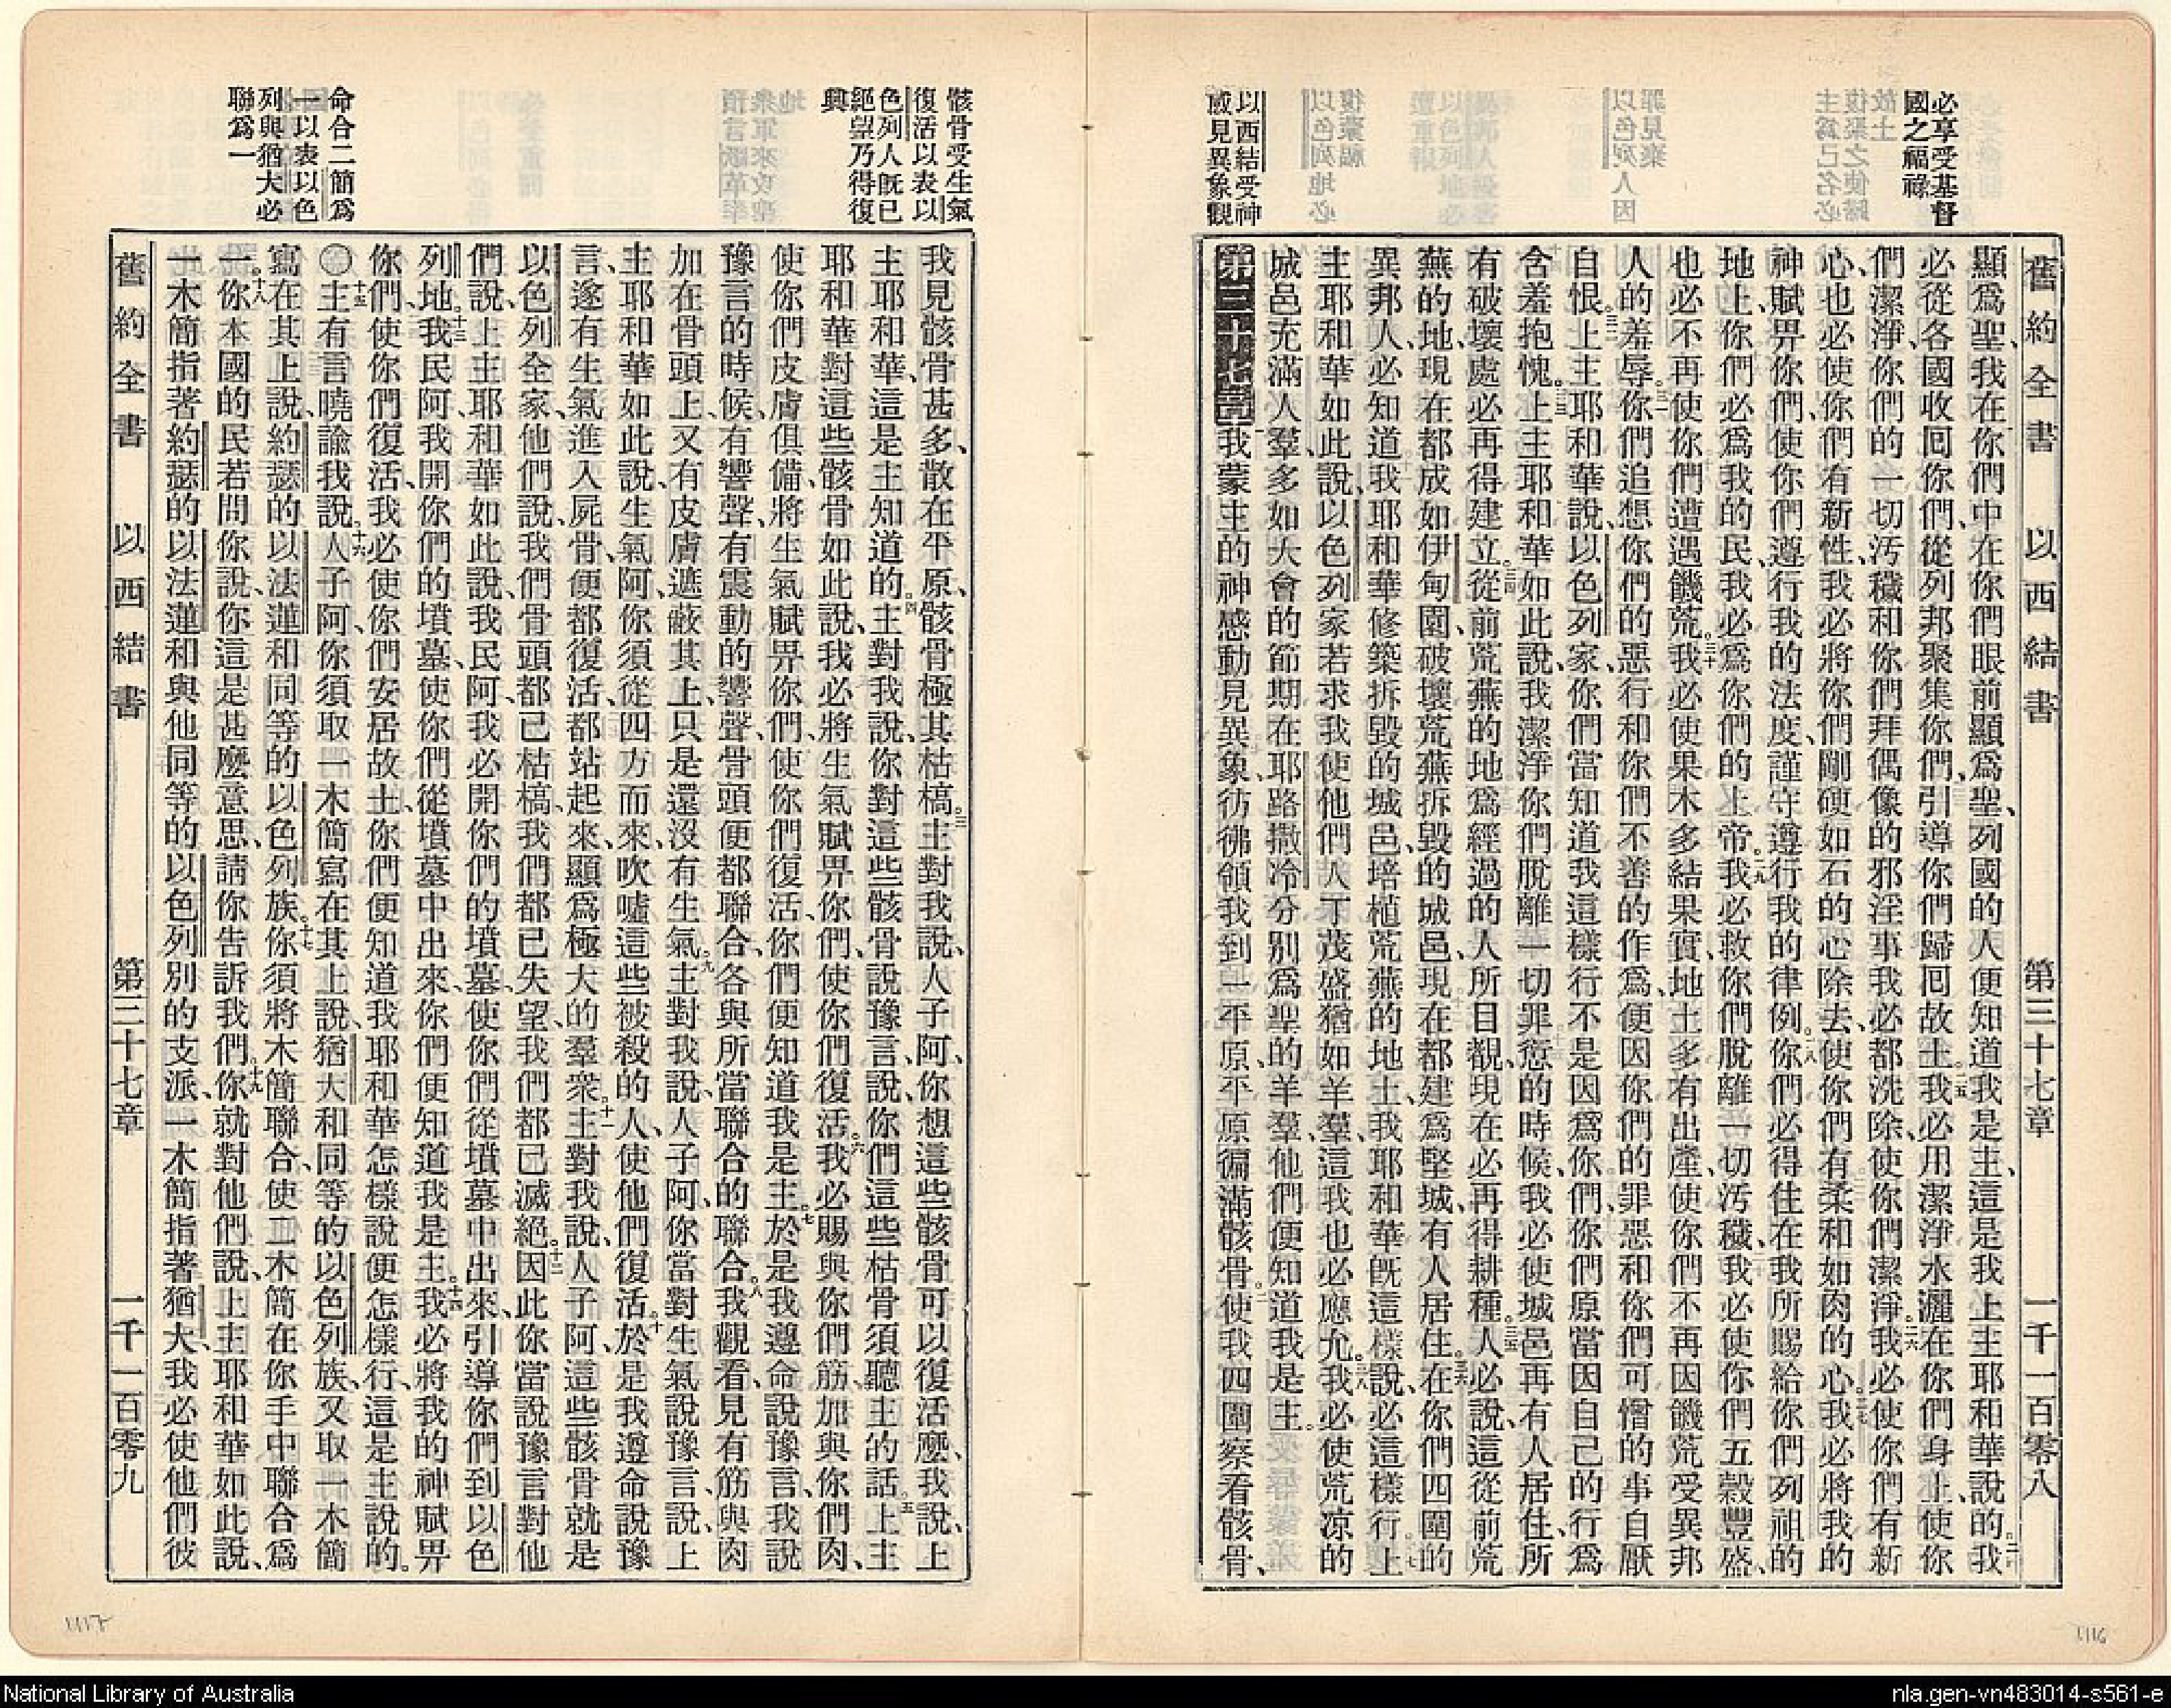 必享受基督
國之福祿
以西結受神
感見異象觀
舊約全書 以西結書 第三十七章 一千一百零八
顯爲聖、我在你們中在你們眼前顯爲聖、列國的人便知道我是主、這是我上主耶和華說的。我
必從各國收回你們、從列邦聚集你們、引導你們歸回故土。二五我必用潔淨水灑在你們身上、使你
們潔淨、你們的一切汚穢和你們拜偶像的邪淫事我必都洗除、使你們潔淨。二六我必使你們有新
心、也必使你們有新性、我必將你們剛硬如石的心除去、使你們有柔和如肉的心。二七我必將我的
神賦畀你們、使你們遵行我的法度、謹守遵行我的律例。二八你們必得住在我所賜給你們列祖的
地上、你們必爲我的民、我必爲你們的上帝。二九我必救你們脫離一切汚穢、我必使你們五穀豐盛、
也必不再使你們遭遇饑荒。三十我必使果木多結果實、地土多有出產、使你們不再因饑荒受異邦
人的羞辱。三一你們追想你們的惡行和你們不善的作爲、便因你們的罪惡和你們可憎的事自厭
自恨。三二上主耶和華說、以色列家、你們當知道我這樣行不是因爲你們、你們原當因自己的行爲
含羞抱愧。三三上主耶和華如此說、我潔淨你們脫離一切罪愆的時候、我必使城邑再有人居住、所
有破壞處必再得建立。三四從前荒蕪的地爲經過的人所目覩、現在必再得耕種。三五人必說、這從前荒
蕪的地、現在都成如伊甸園、破壞荒蕪拆毀的城邑、現在都建爲堅城、有人居住。三六在你們四圍的
異邦人、必知道我耶和華修築拆毀的城邑、培植荒蕪的地土、我耶和華既這樣說、必這樣行。三七上
主耶和華如此說、以色列家若求我使他們人丁茂盛猶如羊羣、這我也必應允。三八我必使荒涼的
城邑充滿人羣、多如大會的節期在耶路撒冷分別爲聖的羊羣、他們便知道我是主。
第三十七章我蒙主的神感動見異象、彷彿領我到一平原、平原徧滿骸骨。二使我四圍察看骸骨、
骸骨受生氣
復活以表以
色列人既已
絕望乃得復
興
命合二簡爲
一以表以色
列與猶大必
聯爲一
我見骸骨甚多、散在平原、骸骨極其枯槁。三主對我說、人子阿、你想這些骸骨可以復活麼、我說、上
主耶和華、這是主知道的。四主對我說、你對這些骸骨說豫言、說、你們這些枯骨須聽主的話。五上主
耶和華對這些骸骨如此說、我必將生氣賦畀你們、使你們復活。六我必賜與你們筋、加與你們肉、
使你們皮膚俱備、將生氣賦畀你們、使你們復活、你們便知道我是主。七於是我遵命說豫言、我說
豫言的時候、有響聲、有震動的響聲、骨頭便都聯合、各與所當聯合的聯合。八我觀看、見有筋與肉
加在骨頭上、又有皮膚遮蔽其上、只是還沒有生氣。九主對我說、人子阿、你當對生氣說豫言、說、上
主耶和華如此說、生氣阿、你須從四方而來、吹噓這些被殺的人、使他們復活。十於是我遵命說豫
言、遂有生氣進入屍骨、便都復活、都站起來、顯爲極大的羣衆。十一主對我說、人子阿、這些骸骨就是
以色列全家、他們說、我們骨頭都已枯槁、我們都已失望、我們都已滅絕。十二因此你當說豫言對他
們說、上主耶和華如此說、我民阿、我必開你們的墳墓、使你們從墳墓中出來、引導你們到以色
列地。十三我民阿、我開你們的墳墓、使你們從墳墓中出來、你們便知道我是主。十四我必將我的神賦畀
你們、使你們復活、我必使你們安居故土、你們便知道我耶和華怎樣說便怎樣行、這是主說的。
〇十五主有言曉諭我說。十六人子阿、你須取一木簡寫在其上說、猶大和同等的以色列族、又取一木簡
寫在其上說、約瑟的以法蓮和同等的以色列族。十七你須將木簡聯合、使二木簡在你手中聯合爲
一。十八你本國的民若問你說、你這是甚麼意思、請你告訴我們。十九你就對他們說、上主耶和華如此說、
此一木簡指著約瑟的以法蓮和與他同等的以色列別的支派、一木簡指著猶大、我必使他們彼
舊約全書 以西結書 第三十七章 一千一百零九
1117
1116
National Library of Australia
nla.gen-vn483014-s561-e